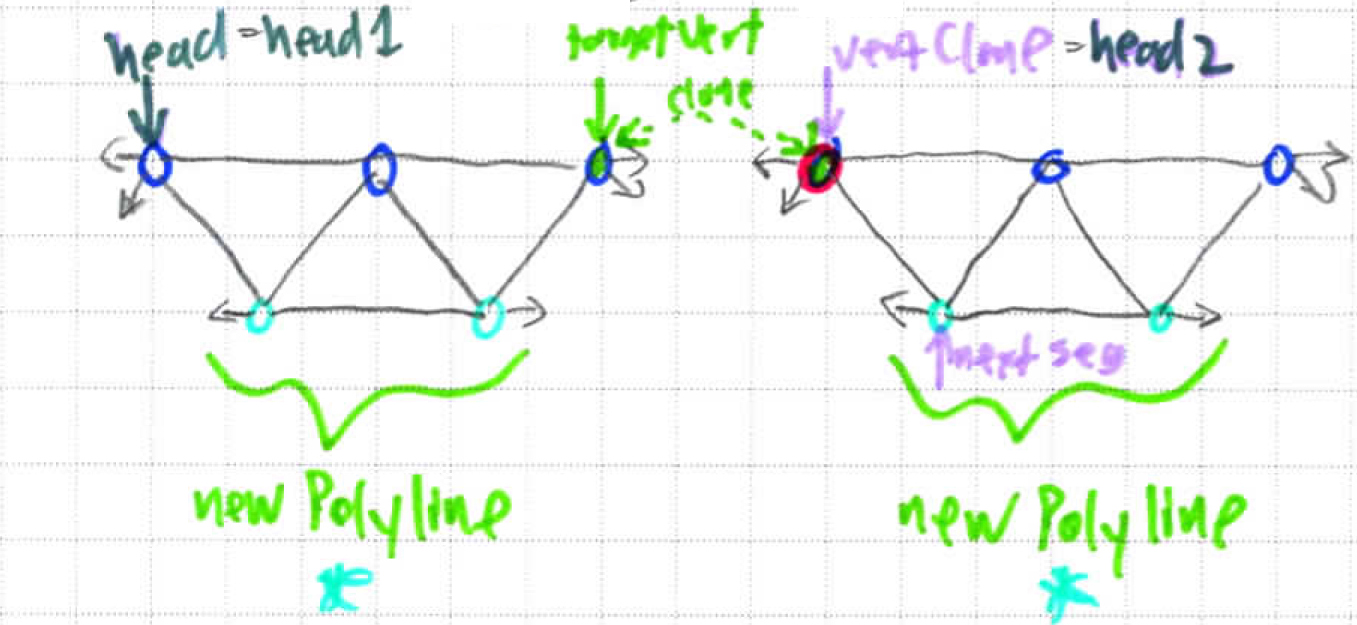 head = head 1
target Vert
clone
vert Clone = head 2
next seg
new Polyline
new Polyline